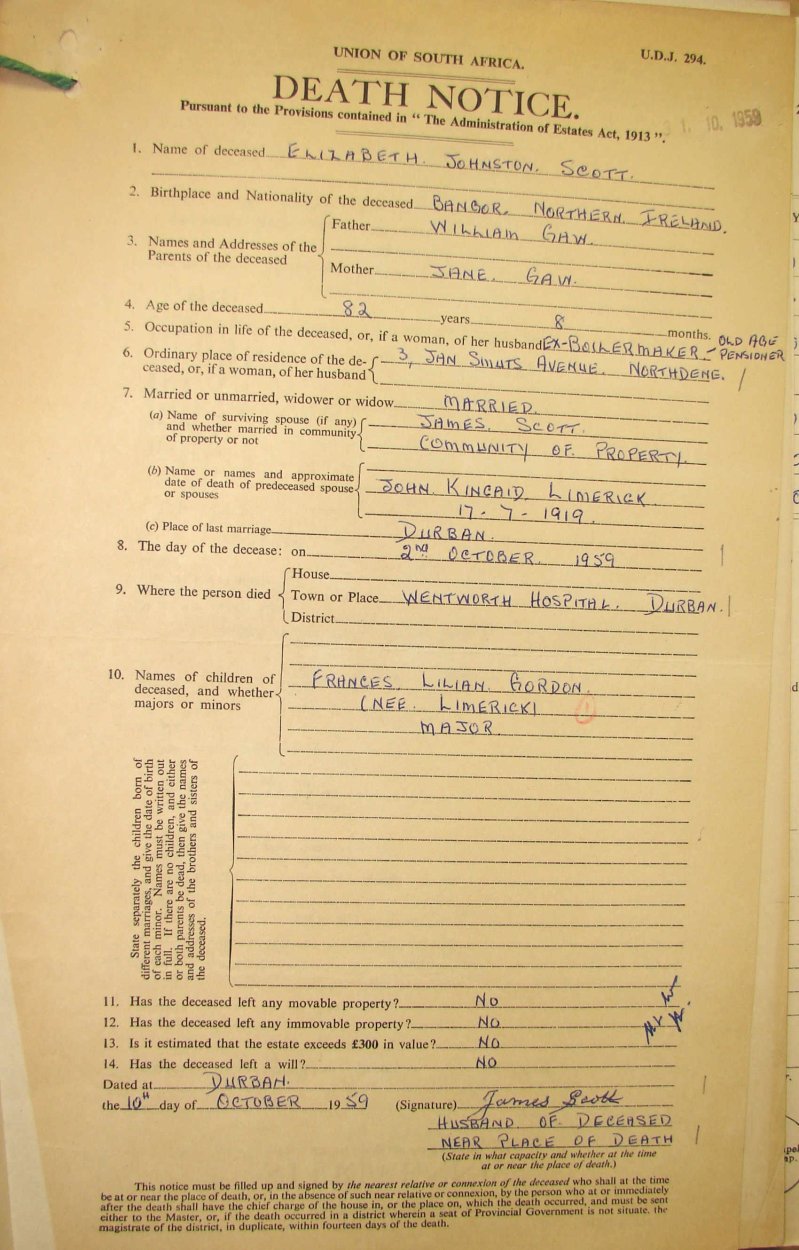 UNION OF SOUTH AFRICA.
U.D.J. 294.
DEATH NOTICE.
Pursuant to the Provisions contained in “ The Administration of Estates Act, 1913 ”.
10. 1959
1. Name of deceased ELIZABETH. JOHNSTON. SCOTT.
2. Birthplace and Nationality of the deceased BANGOR. NORTHERN. IRELAND.
3. Names and Addresses of the Parents of the deceased
Father WILLIAM GAW.
Mother JANE. GAW.
4. Age of the deceased 82 years 8 months.
5. Occupation in life of the deceased, or, if a woman, of her husband EX-BOILERMAKER - OLD AGE PENSIONER
6. Ordinary place of residence of the de-
ceased, or, if a woman, of her husband
3, JAN SMUTS AVENUE. NORTHDENE.
7. Married or unmarried, widower or widow MARRIED.
(a) Name of surviving spouse (if any)
and whether married in community
of property or not
JAMES. SCOTT.
COMMUNITY OF. PROPERTY.
(b) Name or names and approximate
date of death of predeceased spouse
or spouses
JOHN. KINCAID. LIMERICK
17-7-1919.
(c) Place of last marriage DURBAN.
8. The day of the decease: on 2nd OCTOBER. 1959
9. Where the person died
House
Town or Place WENTWORTH HOSPITAL. DURBAN.
District
10. Names of children of
deceased, and whether
majors or minors
FRANCES. LILIAN. GORDON.
(NEE. LIMERICK)
MAJOR
State separately the children born of
different marriages, and give the date of birth
of each minor. Names must be written out
in full. If there are no children, and either
or both parents be dead, then give the names
and addresses of the brothers and sisters of
the deceased.
11. Has the deceased left any movable property? NO
12. Has the deceased left any immovable property? NO.
13. Is it estimated that the estate exceeds £300 in value? NO.
14. Has the deceased left a will? NO
Dated at DURBAN.
the 10th day of OCTOBER 1959 (Signature) James Scott
HUSBAND OF DECEASED
NEAR PLACE OF DEATH
(State in what capacity and whether at the time
at or near the place of death.)
This notice must be filled up and signed by the nearest relative or connexion of the deceased who shall at the time
be at or near the place of death, or, in the absence of such near relative or connexion, by the person who at or immediately
after the death shall have the chief charge of the house in, or the place on, which the death occurred, and must be sent
either to the Master, or, if the death occurred in a district wherein a seat of Provincial Government is not situate, the
magistrate of the district, in duplicate, within fourteen days of the death.